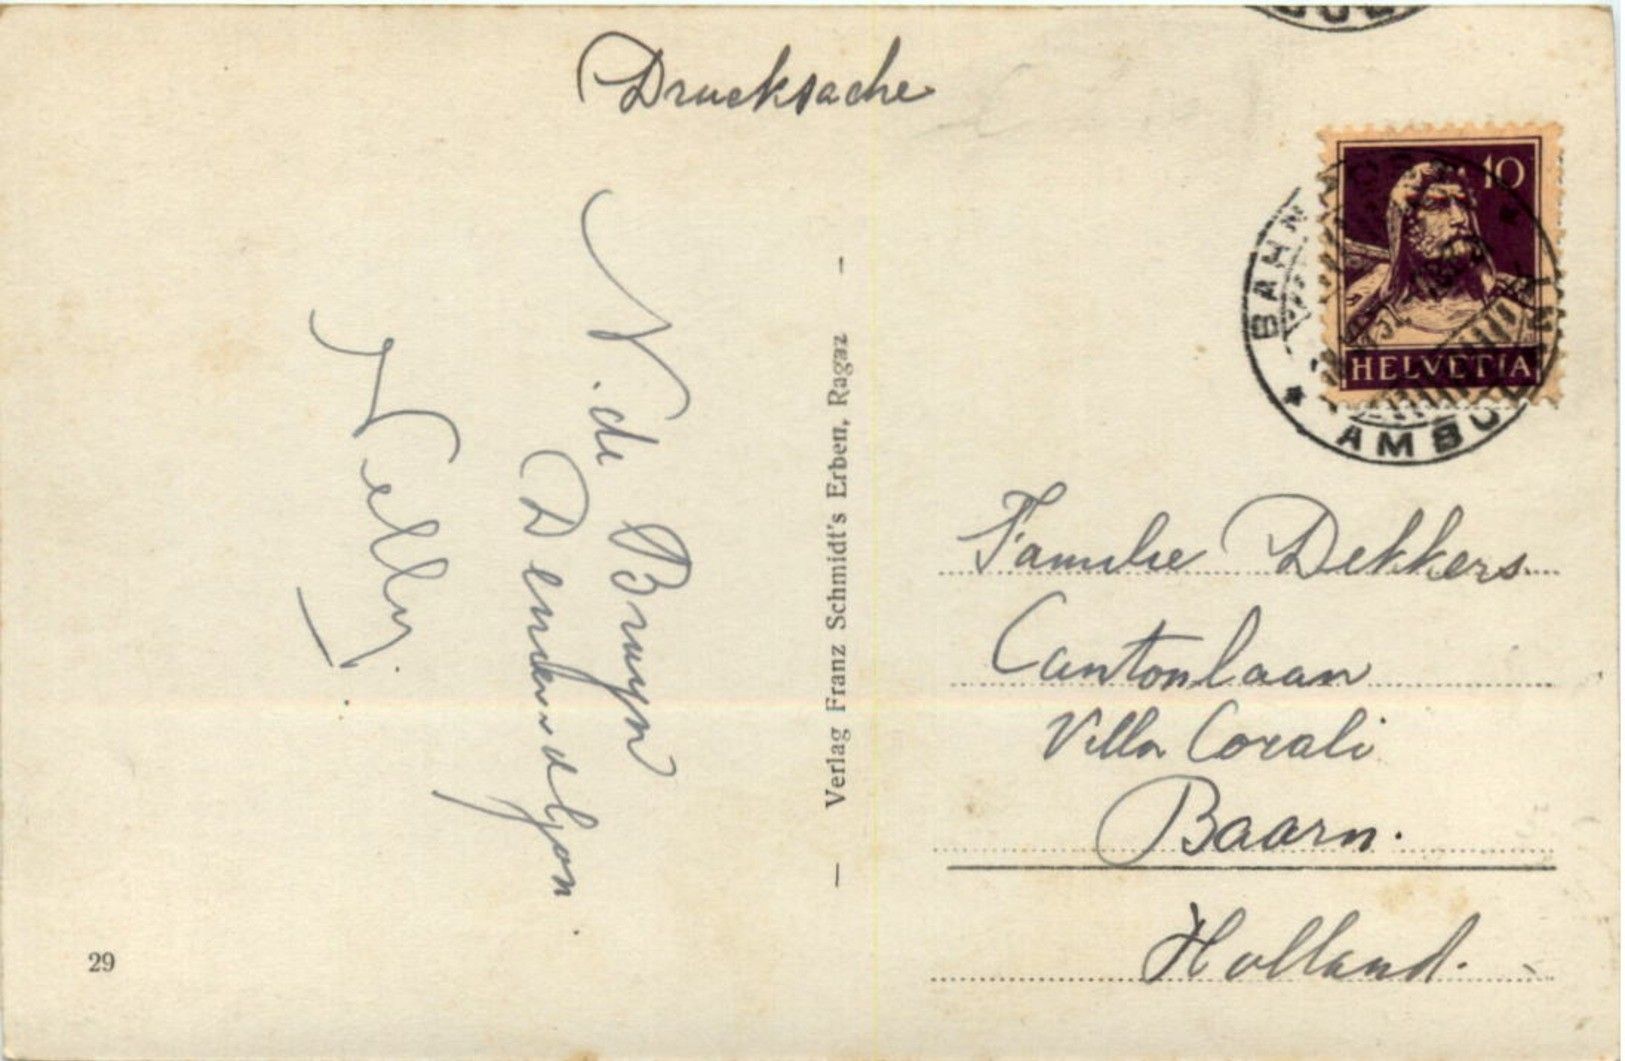 Drucksache
N. de Bruyn
Nelly.
Verlag Franz Schmidt's Erben, Ragaz
29
10
HELVETIA
BAHN
AMBUL
Familie Dekkers.
Cantonlaan
Villa Corali
Baarn.
Holland.